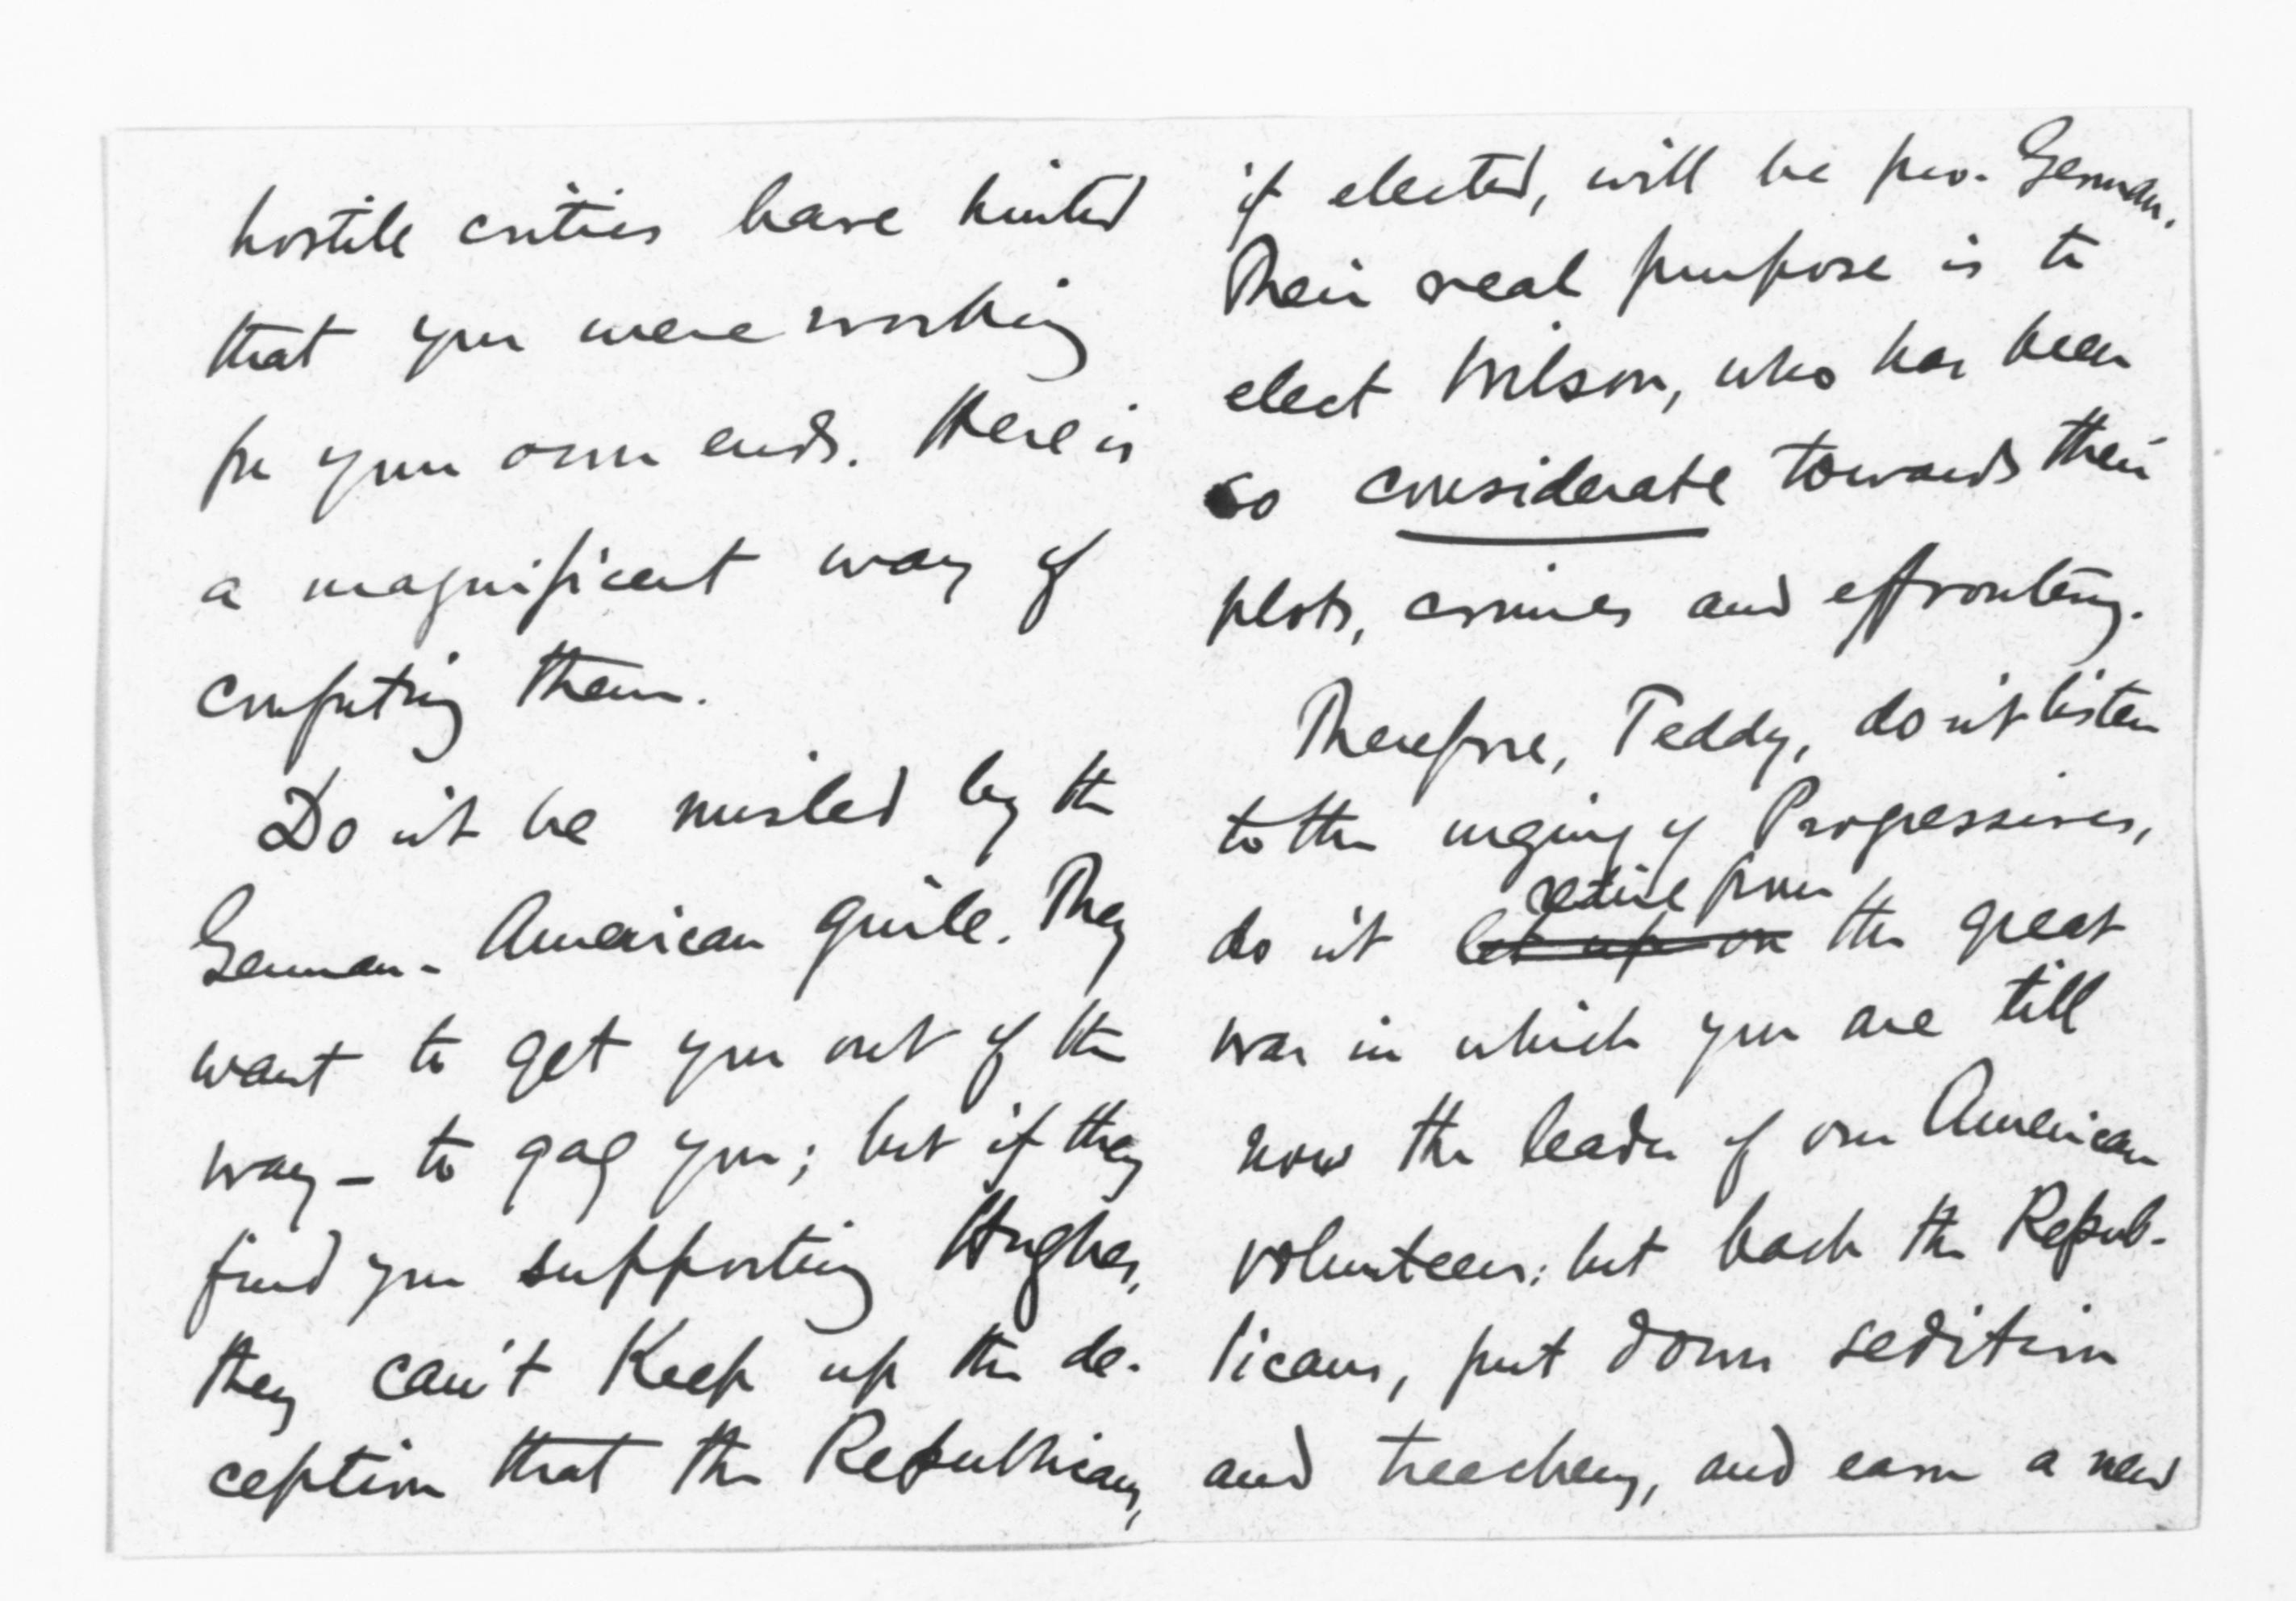 hostile critics have hinted
that you were working
for your own ends. Here is
a magnificent way of
confuting them.
Don't be misled by the
German-American guile. They
want to get you out of the
way – to gag you; but if they
find you supporting Hughes,
they can't keep up the de-
ception that the Republicans,
if elected, will be pro-German.
Their real purpose is to
elect Wilson, who has been
so considerate towards their
plots, crimes and effrontery.
Therefore, Teddy, don't listen
to the urging of Progressives,
retire from
don't let up on the great
war in which you are till
now the leader of our American
volunteers: but back the Repub-
licans, put down sedition
and treachery, and earn a new